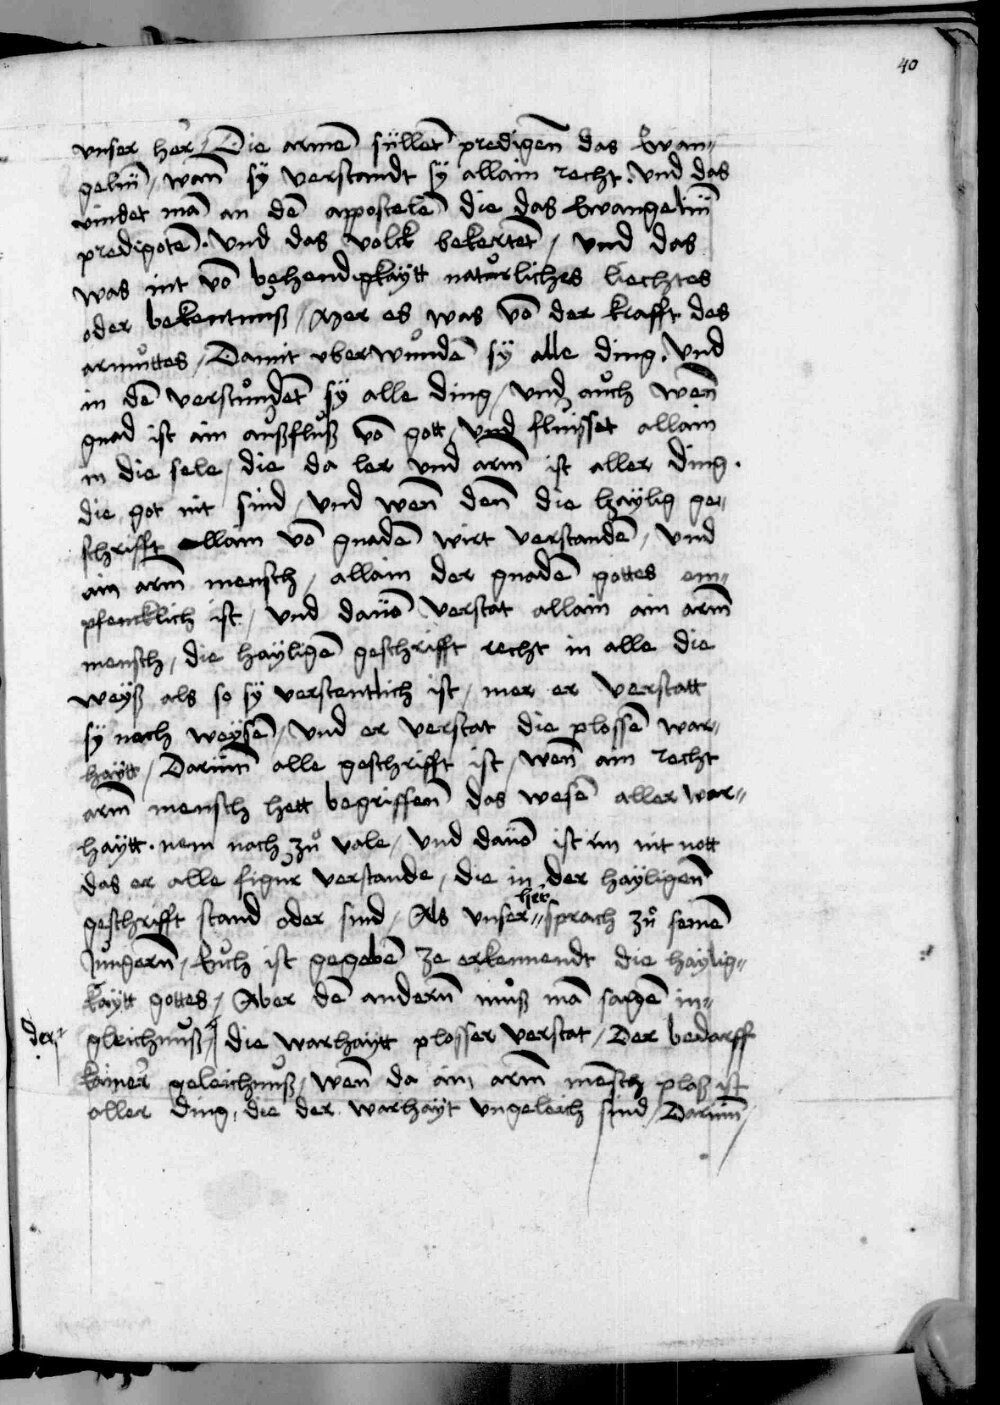 40
vnser her / Die armē süllet predigen̄ das Ewan=
geliū / wan̄ sÿ verstandt sÿ allain recht. Vnd das
vindet mā an dē appostelē die das Ewangeliū
predigotē. Vnd das volck bekertet / vnd das
was nit vō behendigkaÿtt natůrliches liechtes
oder bekentnuß / Mer es was vō der krafft des
armůttes / Damit vberwůndē sÿ alle ding. Vnd
in dē verstůndet sÿ alle ding / vnd aůch wen̄
gnad ist ain außfluß vō gott / vnd flüsset allain
in die sele / die da ler vnd arm̄ ist aller ding.
die got nit sind / vnd wen̄ den̄ die haÿlig ge=
schrifft allain vō gnadē wirt verstandē / vnd
ain arm̄ mensch / allain der gnadē gottes em=
pfencklich ist / vnd dauō verstat allain ain arm̄
mensch / die haÿligē geschrifft recht in alle die
weÿß als so sÿ verstentlich ist / mer er verstatt
sÿ nach weÿsē / vnd er verstat die plossē war=
haÿtt / Darūm̄ alle geschrifft ist / wen̄ ain recht
arm̄ mensch hett begriffen̄ das wesē aller war=
haÿtt. nem nach zů vale / vnd dauō ist im nit nott
das er alle figůr verstande / die in der haÿligen̄
geschrifft stand oder sind / Als vnser her sprach zů seinē
Jůngern̄ / Eůch ist gegebē ze erkennendt die haÿlig=
kaÿtt gottes / Aber dē andern̄ můß mā sagē in=
gleichnůß / der die warhaÿtt plosser verstat / Der bedarff
kainer geleichnůß / wen̄ da ain arm̄ mēsch ploß ist
aller ding, die der warhaÿt vngeleich sind / Darūm̄ /